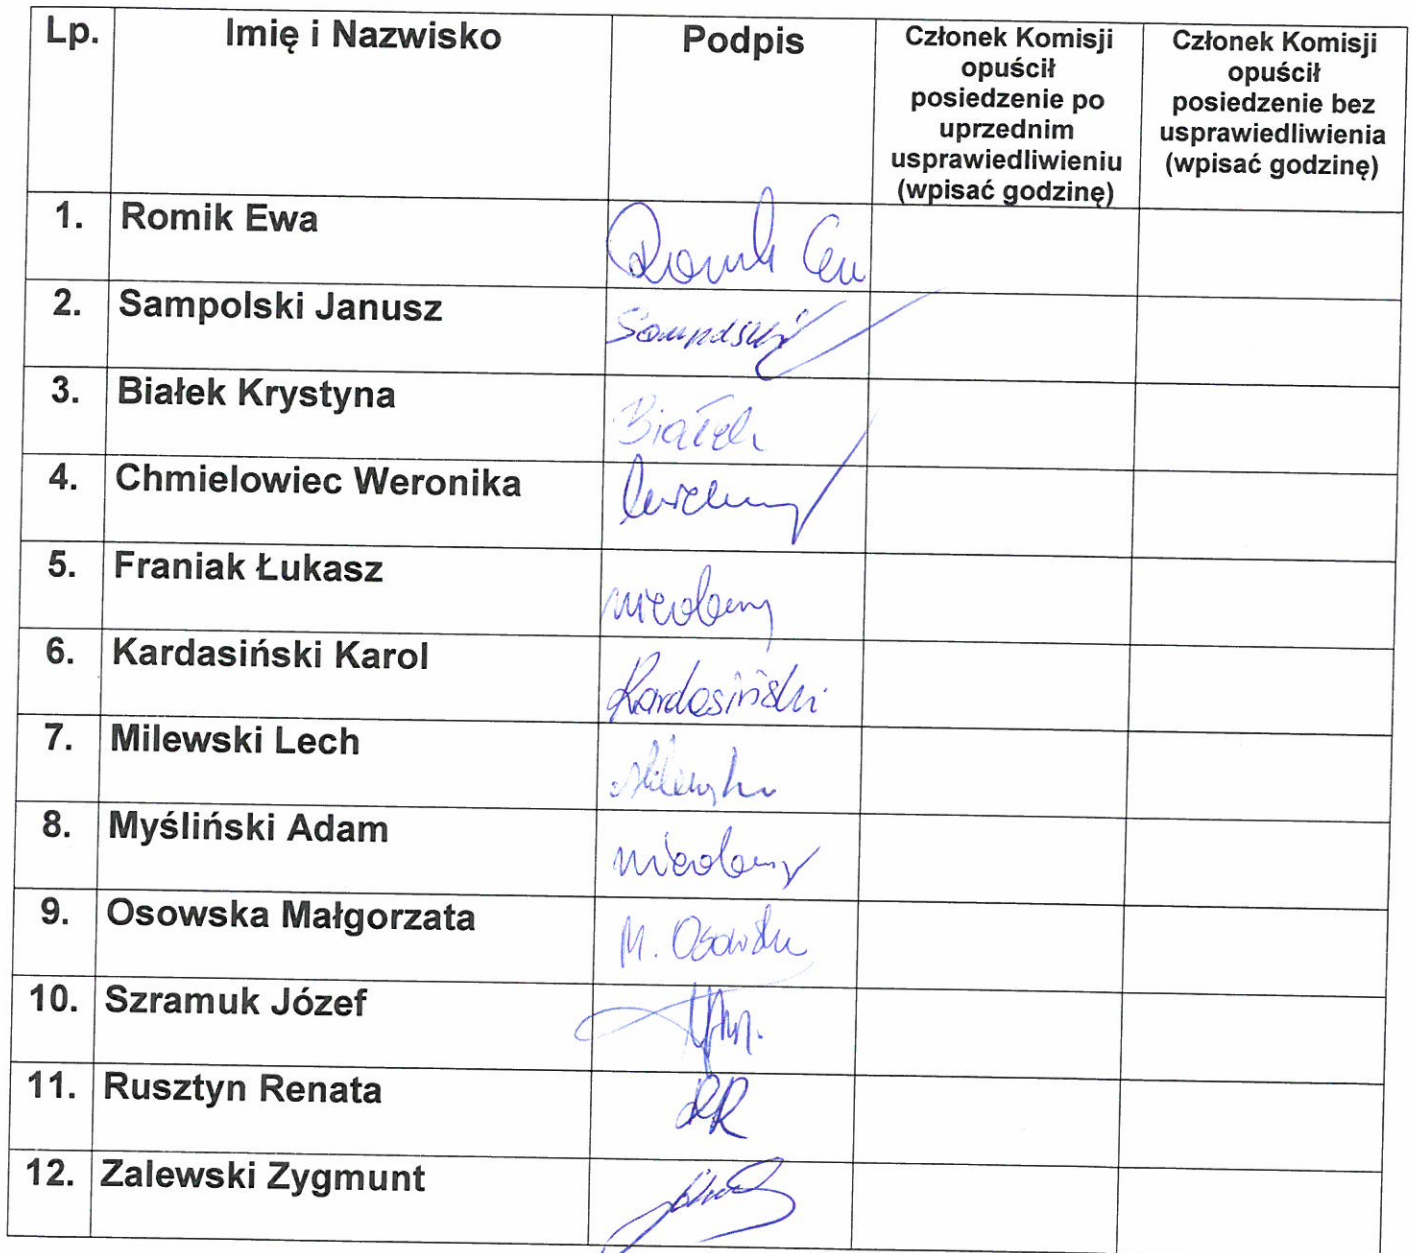 Lp. Imię i Nazwisko Podpis Członek Komisji opuścił posiedzenie po uprzednim usprawiedliwieniu (wpisać godzinę) Członek Komisji opuścił posiedzenie bez usprawiedliwienia (wpisać godzinę)
1. Romik Ewa Romik Ewa
2. Sampolski Janusz Sampolski
3. Białek Krystyna Białek
4. Chmielowiec Weronika
5. Franiak Łukasz nieobecny
6. Kardasiński Karol Kardasiński
7. Milewski Lech Milewski
8. Myśliński Adam nieobecny
9. Osowska Małgorzata M. Osowska
10. Szramuk Józef
11. Rusztyn Renata RR
12. Zalewski Zygmunt